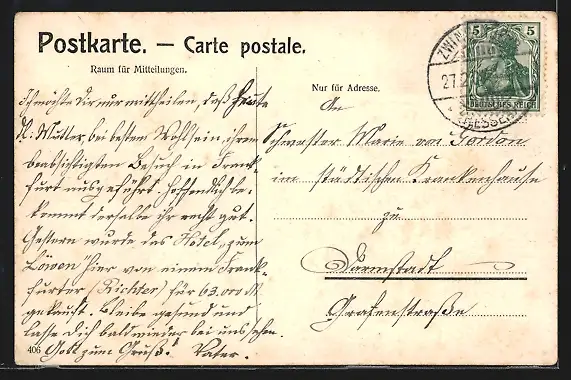 Postkarte. — Carte postale.
Raum für Mitteilungen.
Nur für Adresse.
Ich möchte Dir nur mittheilen, daß heute
N. Mutter bei bestem Wohlsein ihren
beabsichtigten Besuch in Frank-
furt ausgeführt. Hoffentlich be-
kommt derselbe ihr recht gut.
Gestern wurde das Hotel „zum
Löwen" hier von einem Frank-
furter (Richter) für 63.000 M
gekauft. Bleibe gesund und
lasse Dich bald wieder bei uns sehen.
Gott zum Gruß! Vater.
406
An
Schwester Marie von Gordon
im städtischen Krankenhause
zu
Darmstadt
Grafenstraße
5 5
DEUTSCHES REICH
ZWIN
27.2
(HESSEN)